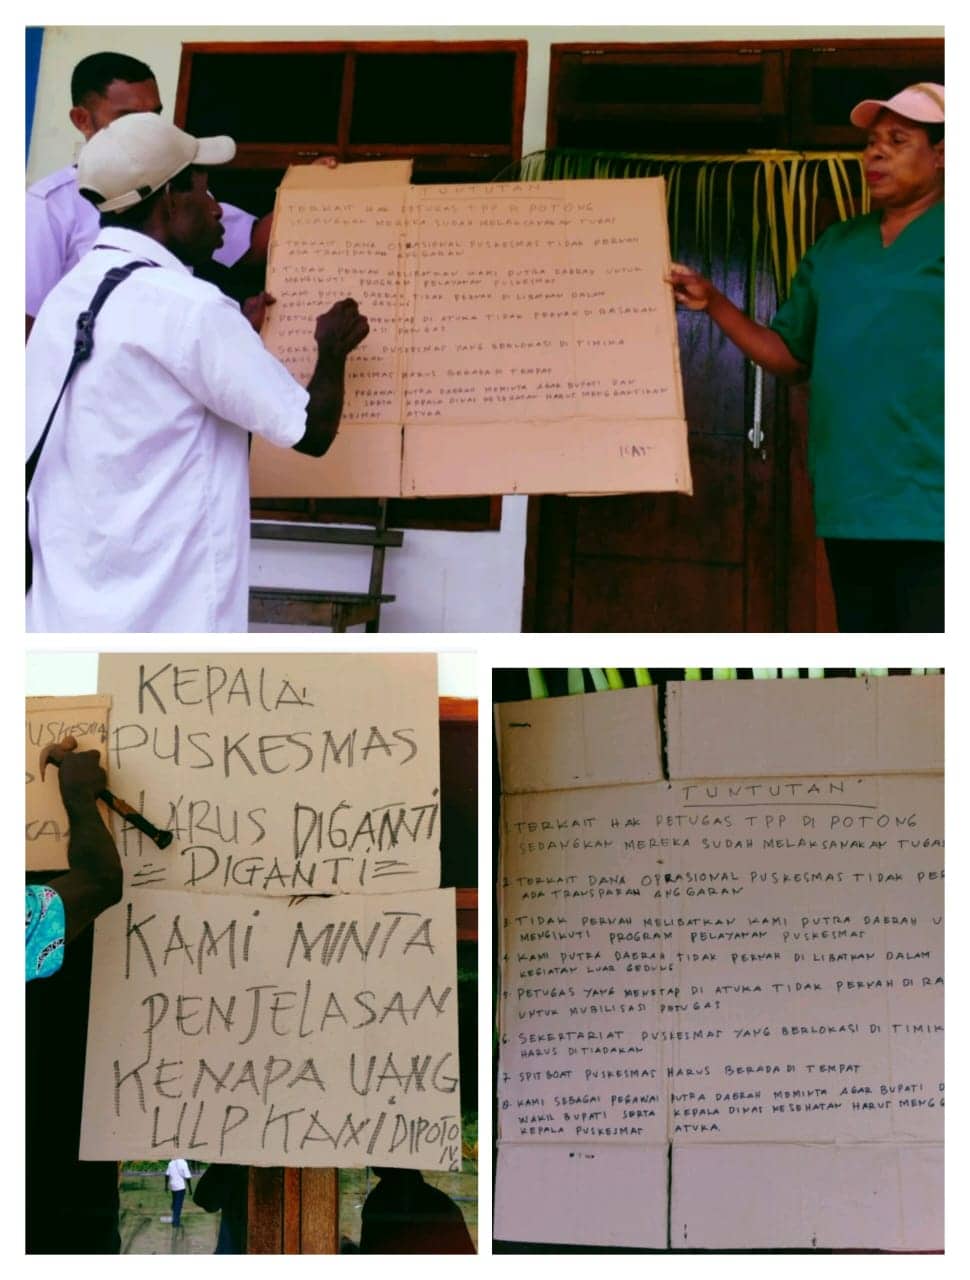 "TUNTUTAN"
1 TERKAIT HAK PETUGAS TPP DI POTONG
SEDANGKAN MEREKA SUDAH MELAKSANAKAN TUGAS
2. TERKAIT DANA OPRASIONAL PUSKESMAS TIDAK PERNAH
ADA TRANSPARAN ANGGARAN
3 TIDAK PERNAH MELIBATKAN KAMI PUTRA DAERAH UNTUK
MENGIKUTI PROGRAM PELAYANAN PUSKESMAS
KAMI PUTRA DAERAH TIDAK PERNAH DI LIBATKAN DALAM
KEGIATAN GEDUNG
PETUGAS MENETAP DI ATUKA TIDAK PERNAH DI RASAKAN
UNTUK PETUGAS
PUSKESMAS YANG BERLOKASI DI TIMIKA
HARUS
HARUS BERADA DI TEMPAT
PEGAWAI PUTRA DAERAH MEMINTA AGAR BUPATI DAN
SERTA KEPALA DINAS KESEHATAN HARUS MENGGANTIKAN
ATUKA
KEPALA
PUSKESMAS
HARUS DIGANTI
= DIGANTI =
KAMI MINTA
PENJELASAN
KENAPA UANG
ULP KAMI DIPOTO
"TUNTUTAN"
1 TERKAIT HAK PETUGAS TPP DI POTONG
SEDANGKAN MEREKA SUDAH MELAKSANAKAN TUGAS
2. TERKAIT DANA OPRASIONAL PUSKESMAS TIDAK PER
ADA TRANSPARAN ANGGARAN
3 TIDAK PERNAH MELIBATKAN KAMI PUTRA DAERAH U
MENGIKUTI PROGRAM PELAYANAN PUSKESMAS
4 KAMI PUTRA DAERAH TIDAK PERNAH DI LIBATKAN DALAM
KEGIATAN LUAR GEDUNG
5. PETUGAS YANG MENETAP DI ATUKA TIDAK PERNAH DI RA
UNTUK MUBILISASI PETUGAS
6. SEKERTARIAT PUSKESMAS YANG BERLOKASI DI TIMIK
HARUS DITIADAKAN
7 SPITBOAT PUSKESMAS HARUS BERADA DI TEMPAT
8. KAMI SEBAGAI PEGAWAI PUTRA DAERAH MEMINTA AGAR BUPATI D
WAKIL BUPATI SERTA KEPALA DINAS KESEHATAN HARUS MENGG
KEPALA PUSKESMAS ATUKA.